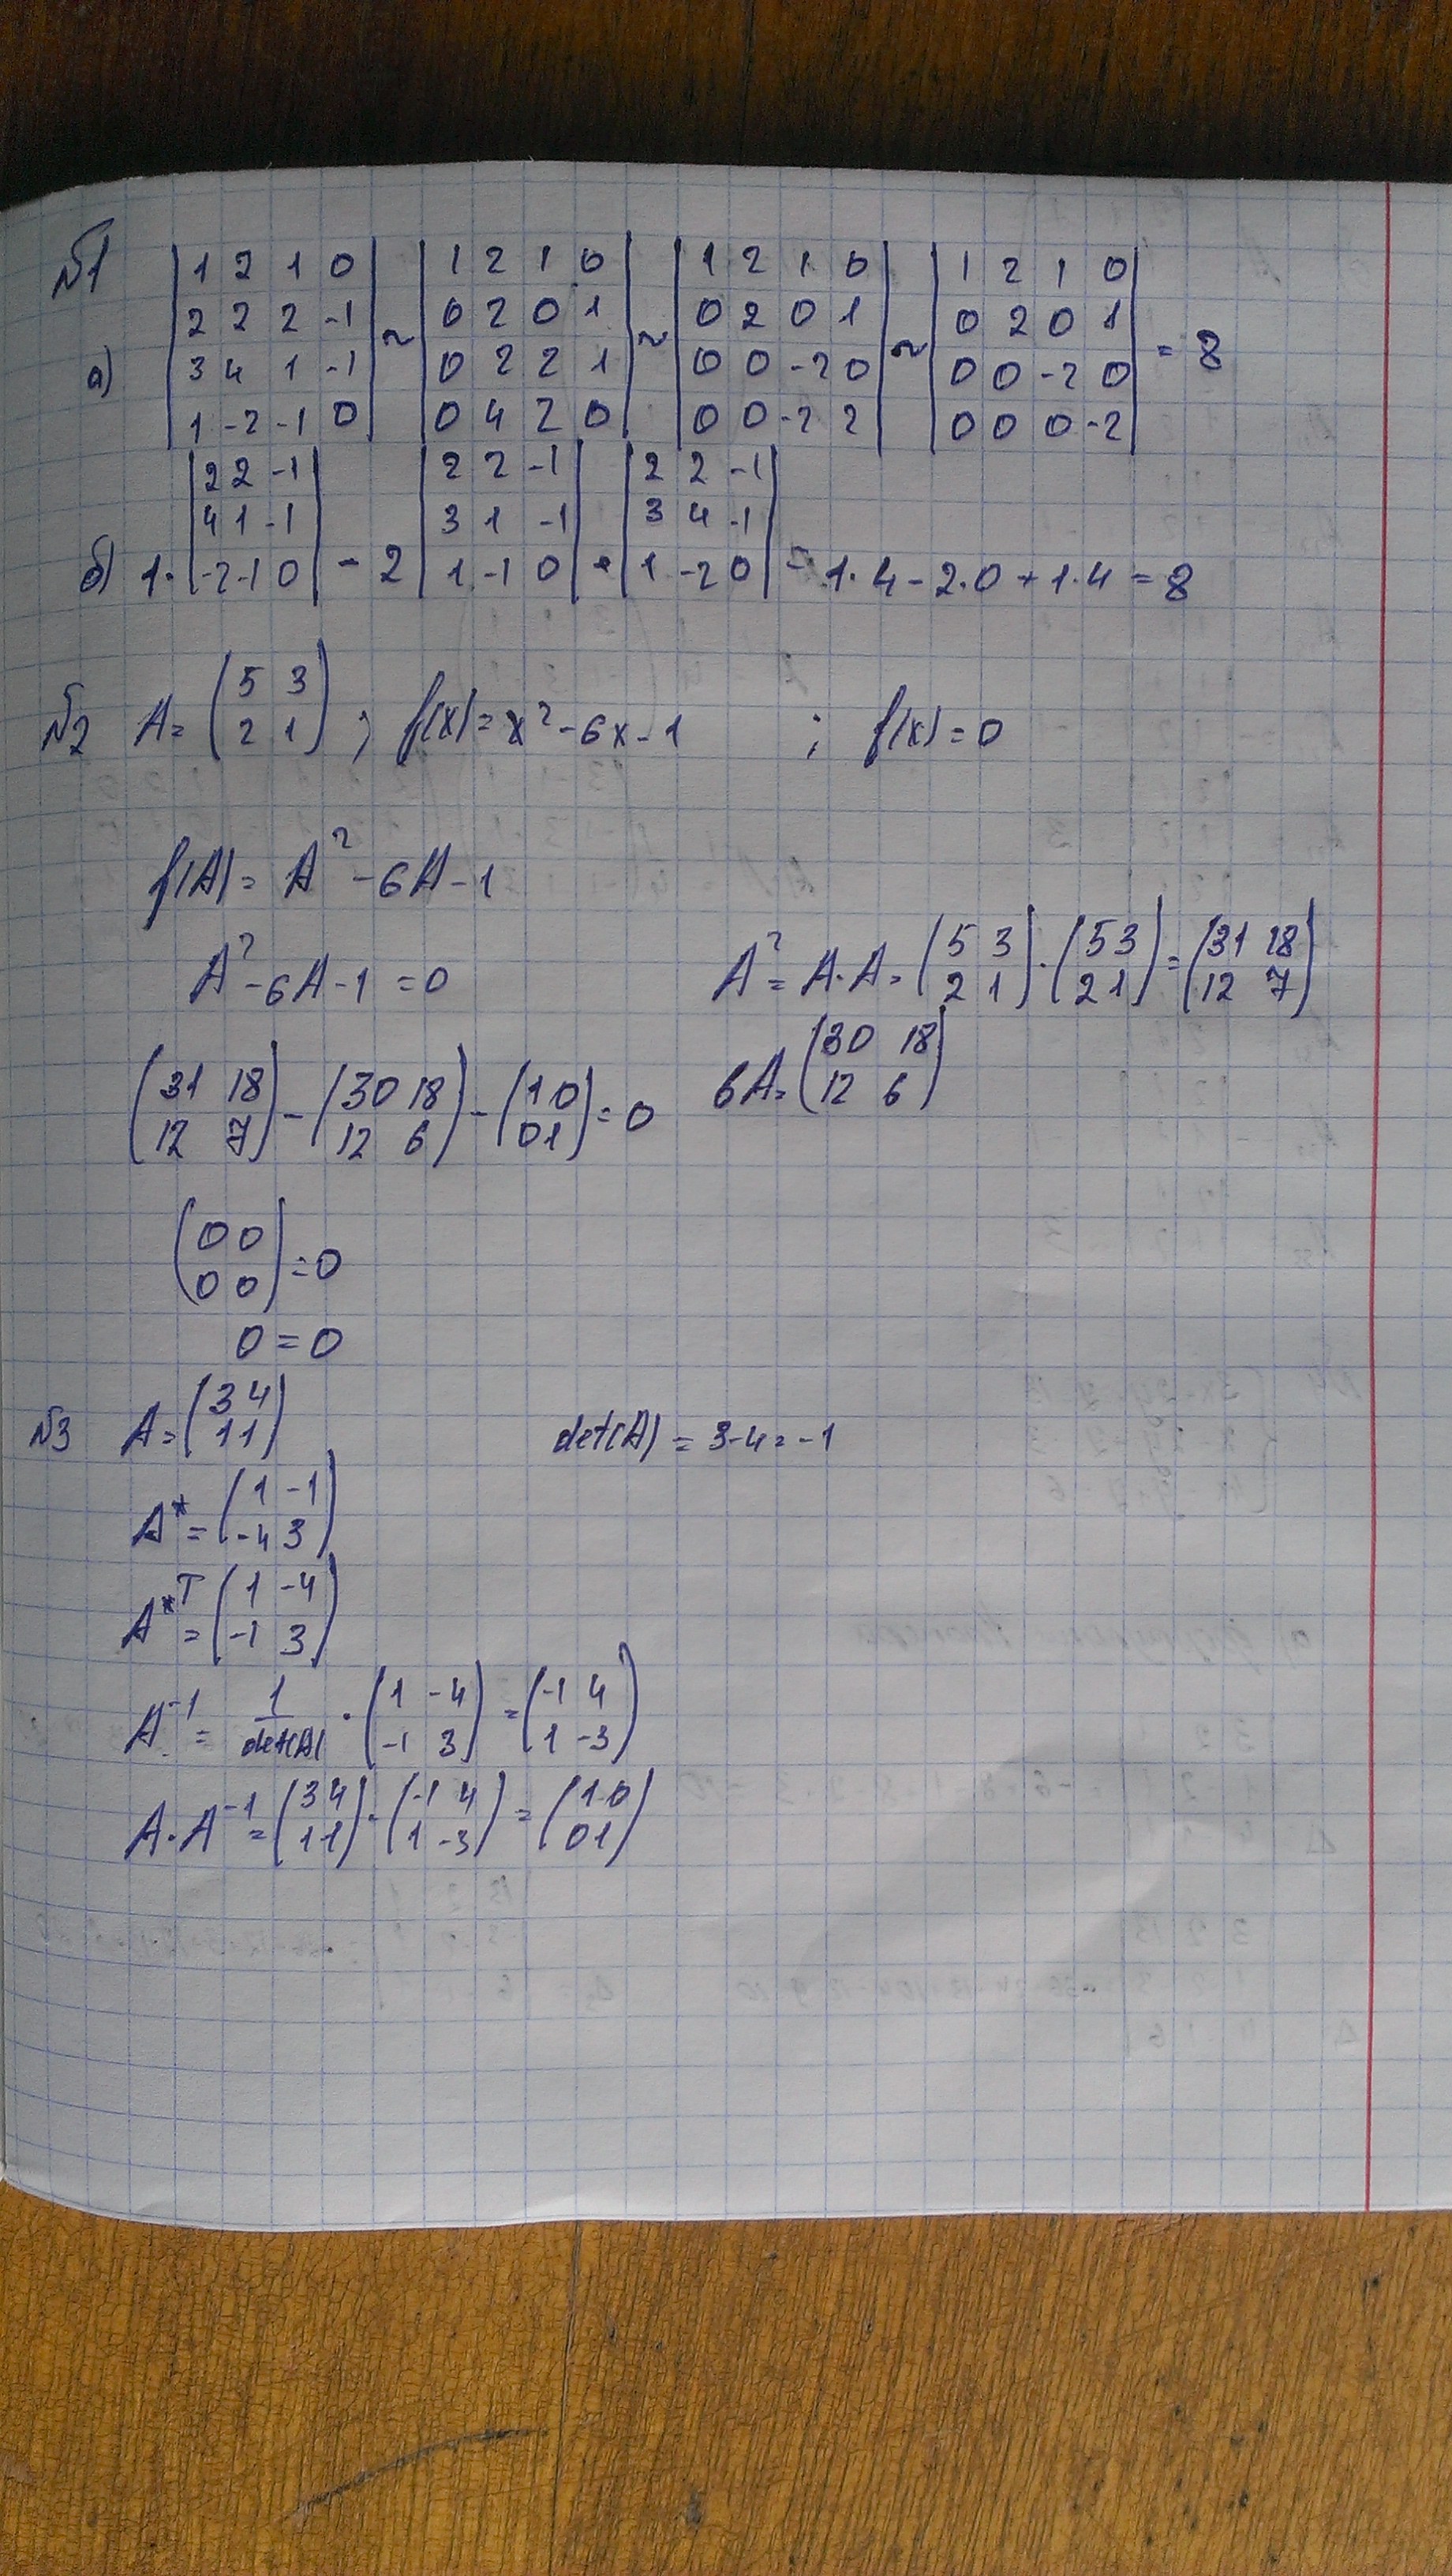 №1
а) |1 2 1 0; 2 2 2 -1; 3 4 1 -1; 1 -2 -1 0| ~ |1 2 1 0; 0 2 0 1; 0 2 2 1; 0 4 2 0| ~ |1 2 1 0; 0 2 0 1; 0 0 -2 0; 0 0 -2 2| ~ |1 2 1 0; 0 2 0 1; 0 0 -2 0; 0 0 0 -2| = 8
б) 1· |2 2 -1; 4 1 -1; -2 -1 0| - 2 |2 2 -1; 3 1 -1; 1 -1 0| + |2 2 -1; 3 4 -1; 1 -2 0| = 1·4 - 2·0 + 1·4 = 8
№2 A = (5 3; 2 1) ; f(x) = x² - 6x - 1 ; f(x) = 0
f(A) = A² - 6A - 1
A² - 6A - 1 = 0
A² = A·A = (5 3; 2 1) · (5 3; 2 1) = (31 18; 12 7)
6A = (30 18; 12 6)
(31 18; 12 7) - (30 18; 12 6) - (1 0; 0 1) = 0
(0 0; 0 0) = 0
0 = 0
№3 A = (3 4; 1 1) det(A) = 3-4 = -1
A* = (1 -1; -4 3)
A*ᵀ = (1 -4; -1 3)
A⁻¹ = 1/det(A) · (1 -4; -1 3) = (-1 4; 1 -3)
A·A⁻¹ = (3 4; 1 1) · (-1 4; 1 -3) = (1 0; 0 1)